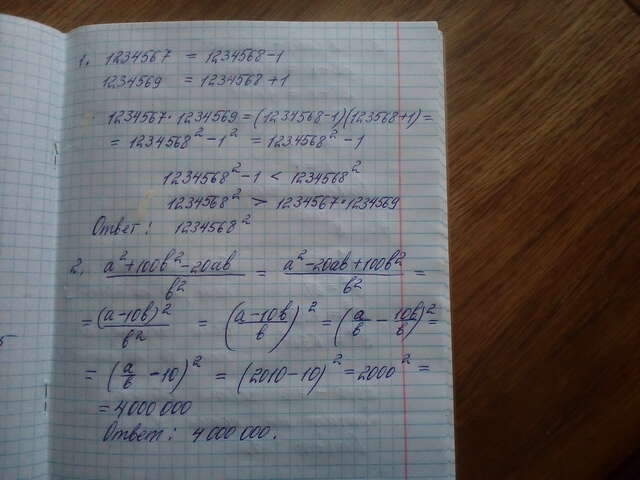 1. 1234567 = 1234568-1
1234569 = 1234568+1
1234567·1234569=(1234568-1)(123568+1)=
= 1234568²-1² = 1234568²-1
1234568²-1 < 1234568²
1234568² > 1234567·1234569
Ответ: 1234568²
2. (a²+100b²-20ab)/b² = (a²-20ab+100b²)/b² =
= (a-10b)²/b² = ((a-10b)/b)² = (a/b - 10b/b)² =
= (a/b - 10)² = (2010-10)² = 2000² =
= 4000 000
Ответ: 4 000 000.